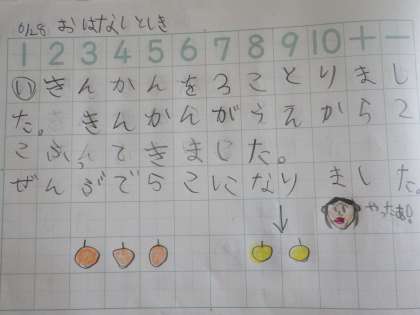 6/28 おはなしとしき
1 2 3 4 5 6 7 8 9 10 + −
い きんかんを3ことりまし
た。 きんかんがうえから2
こふってきました。
ぜんぶで5こになりました。
やったあ!